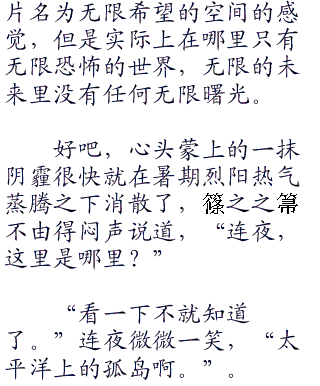 片名为无限希望的空间的感
觉，但是实际上在哪里只有
无限恐怖的世界，无限的未
来里没有任何无限曙光。
好吧，心头蒙上的一抹
阴霾很快就在暑期烈阳热气
蒸腾之下消散了，篠之之箒
不由得闷声说道，“连夜，
这里是哪里？”
“看一下不就知道
了。”连夜微微一笑，“太
平洋上的孤岛啊。”。